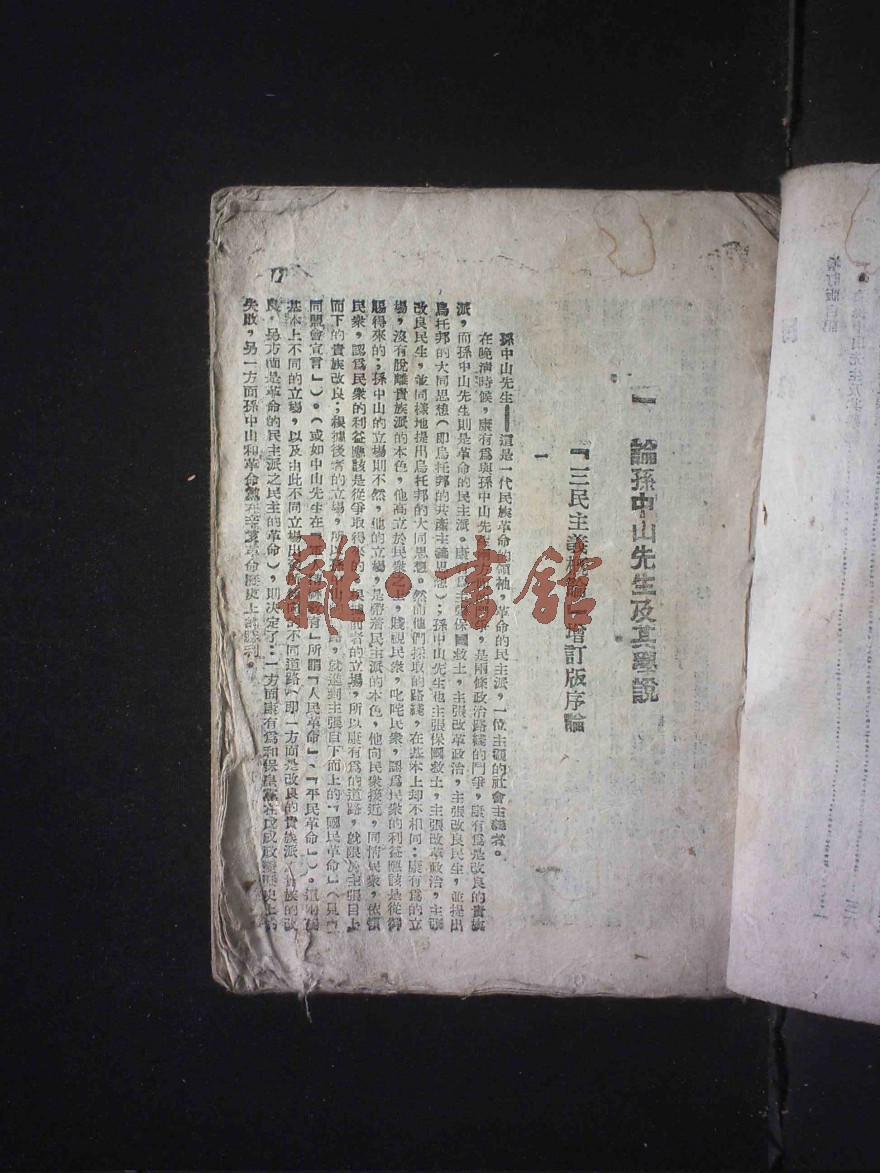 一　論孫中山先生及其學說
『三民主義概論』增訂版序論
一
孫中山先生——這是一代民族革命的領袖，革命的民主派，一位主觀的社會主義者。
在晚淸時候，康有爲與孫中山先生 是兩條政治路綫的鬥爭，康有爲是改良的貴族
派，而孫中山先生則是革命的民主派。康有爲主張保國救土，主張改革政治，主張改良民生，並提出
烏托邦的大同思想（即烏托邦的共產主義思想）；孫中山先生也主張保國救土，主張改革政治，主張
改良民生，並同樣地提出烏托邦的大同思想。然而他們採取的路綫，在基本上却不相同：康有爲的立
場，沒有脫離貴族派的本色，他高立於民衆之上，賤視民衆，叱咤民衆，認爲民衆的利益應該是從御
賜得來的；孫中山的立場則不然，他的立場，是帶着民主派的本色，他向民衆接近，同情民衆，依賴
民衆，認爲民衆的利益應該是從爭取得來的。根據前者的立場，所以康有爲的道路，就限於主張自上
而下的貴族改良；根據後者的立場，所以孫中山的道路，就達到主張自下而上的『國民革命』（見『
同盟會宣言』）。（或如中山先生在 所謂『人民革命』、『平民革命』）。這兩個
基本上不同的立場，以及由此不同立場出發所 的不同道路（即一方面是改良的貴族派之貴族的改
良，另方面是革命的民主派之民主的革命），則決定了：一方面康有爲和保皇黨在戊戌政變歷史上的
失敗，另一方面孫中山和革命黨在辛亥革命歷史上的勝利。
雜·書館
增訂版自語